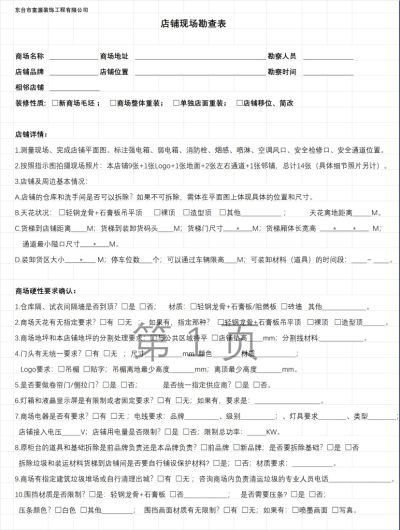 东台市富源装饰工程有限公司
店铺现场勘查表
商场名称 商场地址 勘察人员
店铺品牌 店铺位置 勘察时间
相邻店铺
装修性质: □新商场毛坯; □商场整体重装; □单独店面重装; □店铺移位、简改
店铺详情:
1.测量现场、完成店铺平面图。标注强电箱、弱电箱、消防栓、烟感、喷淋、空调风口、安全检修口、安全通道位置。
2.按照指示图拍摄现场照片: 本店铺9张+1张Logo+1张地面+2张左右通道+1张邻铺, 总计14张（具体细节照片另计）。
3.店铺及周边基本情况:
A.店铺的仓库和洗手间是否可以拆除? 如果不可拆除, 需体在平面图上体现具体的位置和尺寸。
B.天花状况: □轻钢龙骨+石膏板吊平顶 □裸顶 □造型顶 □其他____; 天花离地距离____M。
C.货梯到店铺距离____M; 货梯到装卸货码头____M; 货梯门尺寸__*__M; 货梯厢体长宽高__*__*__M,
通道最小隘口尺寸__*__M。
D.装卸货区大小__*__M; 停车位数____个; 可以通过车辆限高____M; 可装卸材料（道具）的时间段: ____-____。
商场硬性要求确认:
1.仓库隔、试衣间隔墙是否到顶? □是 □否; 材质: □轻钢龙骨+石膏板/阻燃板 □砖墙 其他____。
2.商场天花有无指定要求? □有 □无 。如果有, 指定那种? □轻钢龙骨+石膏板吊平顶 □裸顶 □造型顶____。
3.商场地坪和本店铺地坪的分割处理要求: □与公共区域持平 □店铺垫高____mm; 分割线材料____。
4.门头有无统一要求? □有 □无 ; 尺寸____mm 颜色____ 材质____;
Logo要求: □吊楣 □贴字; 吊楣离地最少高度____mm; 离顶最少高度____mm。
5.是否要做卷帘门/侧拉门? □是 □否; 是否统一指定供应商? □是 □否。
6.灯箱和液晶显示屏是有限制或者固定要求? □有 □无; 如果有, 要求是: ____。
7.商场电器是否有要求? □有 □无; 电线要求: 品牌____、级别____; 、灯具要求____、类型____;
店铺接入电压____V; 店铺用电量是否限制? □是 □否; 限制总功率: ____KW。
8.原柜台的道具和基础拆除是前品牌负责还是本品牌负责? □前品牌 □新品牌; 是否要拆除基础? □是 □否
拆除垃圾和装运材料货梯到店铺间是否要自行铺设保护材料? □是 □否; 材质要求: ____。
9.商场有指定建筑垃圾堆场或自行清理出城? □有 □无; 咨询商场内负责清运垃圾的专业人员电话____。
10.围挡材质是否限制? □是: 轻钢龙骨+石膏板 □否____; 是否需要压条? □是 □否;
压条颜色? □白色 □其他____; 围挡画面材质有无限制? □有 □无; 如果有: □喷墨画面 □写真。
第 1 页